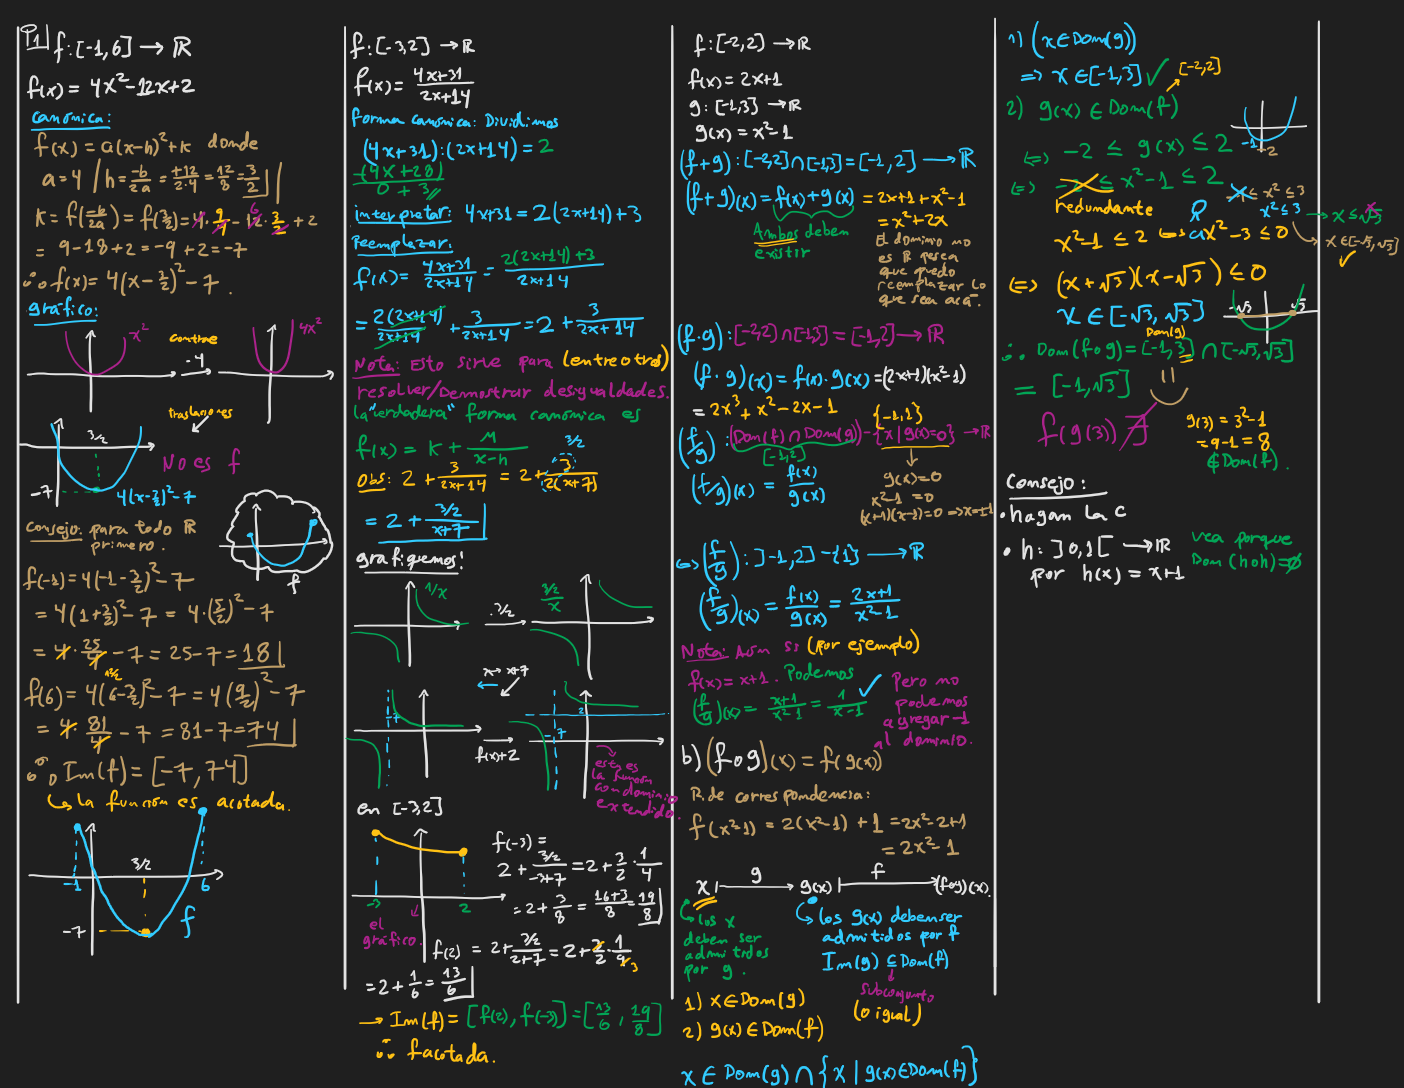 1) f: [-1,6] → ℝ
f(x) = 4x²-12x+2
canónica:
f(x) = a(x-h)²+k donde
a=4 / h = -b/2a = +12/2·4 = 12/8 = 3/2
k = f(-b/2a) = f(3/2) = 4·9/4 - 12·3/2 + 2
6
= 9-18+2 = -9+2 = -7
∴ f(x) = 4(x-3/2)²-7.
gráfico:
x²
contrae
-4
4x²
traslaciones
3/2
-7
4(x-3/2)²-7
No es f
Consejo: para todo ℝ
primero.
f
f(-1) = 4(-1-3/2)²-7
= 4(1+3/2)²-7 = 4·(5/2)²-7
= 4·25/4 - 7 = 25-7 = 18
12/2
f(6) = 4(6-3/2)²-7 = 4(9/2)²-7
= 4·81/4 - 7 = 81-7 = 74
∴ Im(f) = [-7,74]
↳ la función es acotada.
-1
3/2
6
-7
f
f: [-3,2] → ℝ
f(x) = 4x+31/2x+14
forma canónica: Dividimos
(4x+31):(2x+14) = 2
-(4x+28)
0 + 3
interpretar: 4x+31 = 2(2x+14)+3
Reemplazar:
f(x) = 4x+31/2x+14 = 2(2x+14)+3/2x+14
= 2(2x+14)/2x+14 + 3/2x+14 = 2 + 3/2x+14
Nota: Esto sirve para (entre otros)
resolver/Demostrar desigualdades.
la "verdadera" forma canónica es
f(x) = k + M/x-h
3/2
Obs: 2 + 3/2x+14 = 2 + 3/2(x+7)
= 2 + 3/2/x+7
grafiquemos!
1/x
·3/2
3/2/x
x → x+7
←
-7
f(x)+2
2
-7
esto es
la función
con dominio
extendido.
en [-3,2]
-3
2
el
gráfico.
f(-3) =
2 + 3/2/-3+7 = 2 + 3/2·1/4
= 2 + 3/8 = 16+3/8 = 19/8
f(2) = 2 + 3/2/2+7 = 2 + 3/2·1/9
3
= 2 + 1/6 = 13/6
→ Im(f) = [f(2), f(-3)] = [13/6, 19/8]
∴ f acotada.
f: [-2,2] → ℝ
f(x) = 2x+1
g: [-1,3] → ℝ
g(x) = x²-1
(f+g): [-2,2]∩[-1,3] = [-1,2] → ℝ
(f+g)(x) = f(x)+g(x) = 2x+1+x²-1
= x²+2x
Ambos deben
existir
El dominio no
es ℝ pesea
que puedo
reemplazar lo
que sea acá.
(f·g): [-2,2]∩[-1,3] = [-1,2] → ℝ
(f·g)(x) = f(x)·g(x) = (2x+1)(x²-1)
= 2x³+x²-2x-1
{-1,1}
(f/g): (Dom(f)∩Dom(g)) - {x | g(x)=0} → ℝ
[-1,2]
(f/g)(x) = f(x)/g(x)
g(x)=0
x²-1=0
(x+1)(x-1)=0 ⇒ x=±1
⇔ (f/g): ]-1,2] - {1} → ℝ
(f/g)(x) = f(x)/g(x) = 2x+1/x²-1
Nota: Aún si (por ejemplo)
f(x) = x+1. Podemos
(f/g)(x) = x+1/x²-1 = 1/x-1 ✓
Pero no
podemos
agregar -1
al dominio.
b) (f∘g)(x) = f(g(x))
R. de correspondencia:
f(x²-1) = 2(x²-1)+1 = 2x²-2+1
= 2x²-1
x
g
g(x)
f
(f∘g)(x).
los x
deben ser
admitidos
por g.
los g(x) deben ser
admitidos por f
Im(g) ⊆ Dom(f)
subconjunto
(o igual)
1) x∈Dom(g)
2) g(x)∈Dom(f)
x ∈ Dom(g) ∩ {x | g(x)∈Dom(f)}
1) (x∈Dom(g))
⇒ x∈[-1,3] ✓
[-2,2]
2) g(x)∈Dom(f)
-1
-2
⇔ -2 ≤ g(x) ≤ 2
⇔ -2 ≤ x²-1 ≤ 2
redundante
≤ x² ≤ 3
x² ≤ 3
→ x ≤ √3
x∈[-√3,√3]
✓
x²-1 ≤ 2 ⇔ x²-3 ≤ 0
⇔ (x+√3)(x-√3) ≤ 0
x∈[-√3,√3]
-√3
√3
Dom(g)
∴ Dom(f∘g) = [-1,3]∩[-√3,√3]
= [-1,√3]
f(g(3)) ∄
g(3) = 3²-1
= 9-1 = 8
∉ Dom(f).
Consejo:
• hagan la c
• h: ]0,1[ → ℝ
por h(x) = x+1
vea porque
Dom(h∘h)=∅